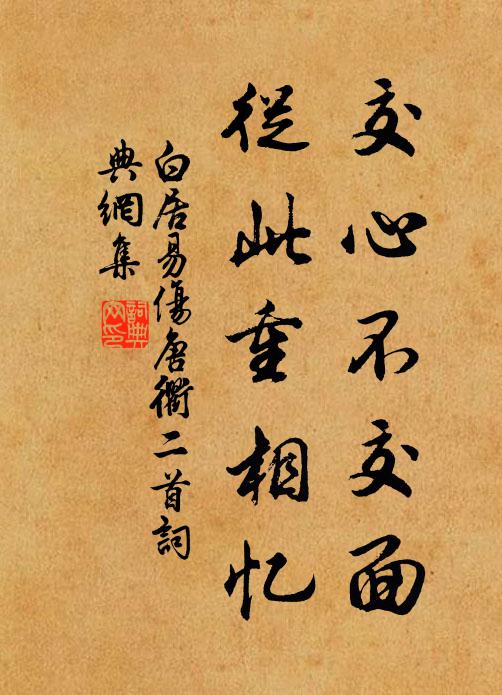 交心不交面
從此重相忆
白居易傷唐衢二首詞
典網集
詞典
网印